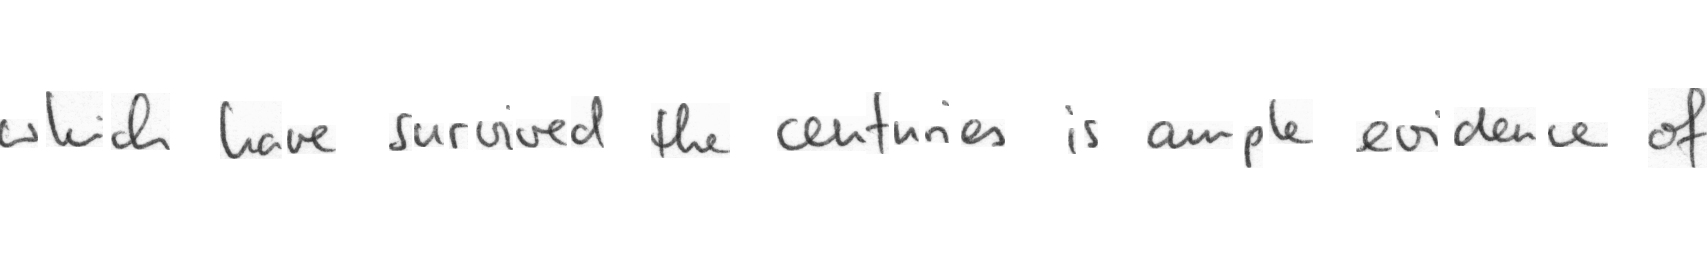 which have survived the centuries is ample evidence of